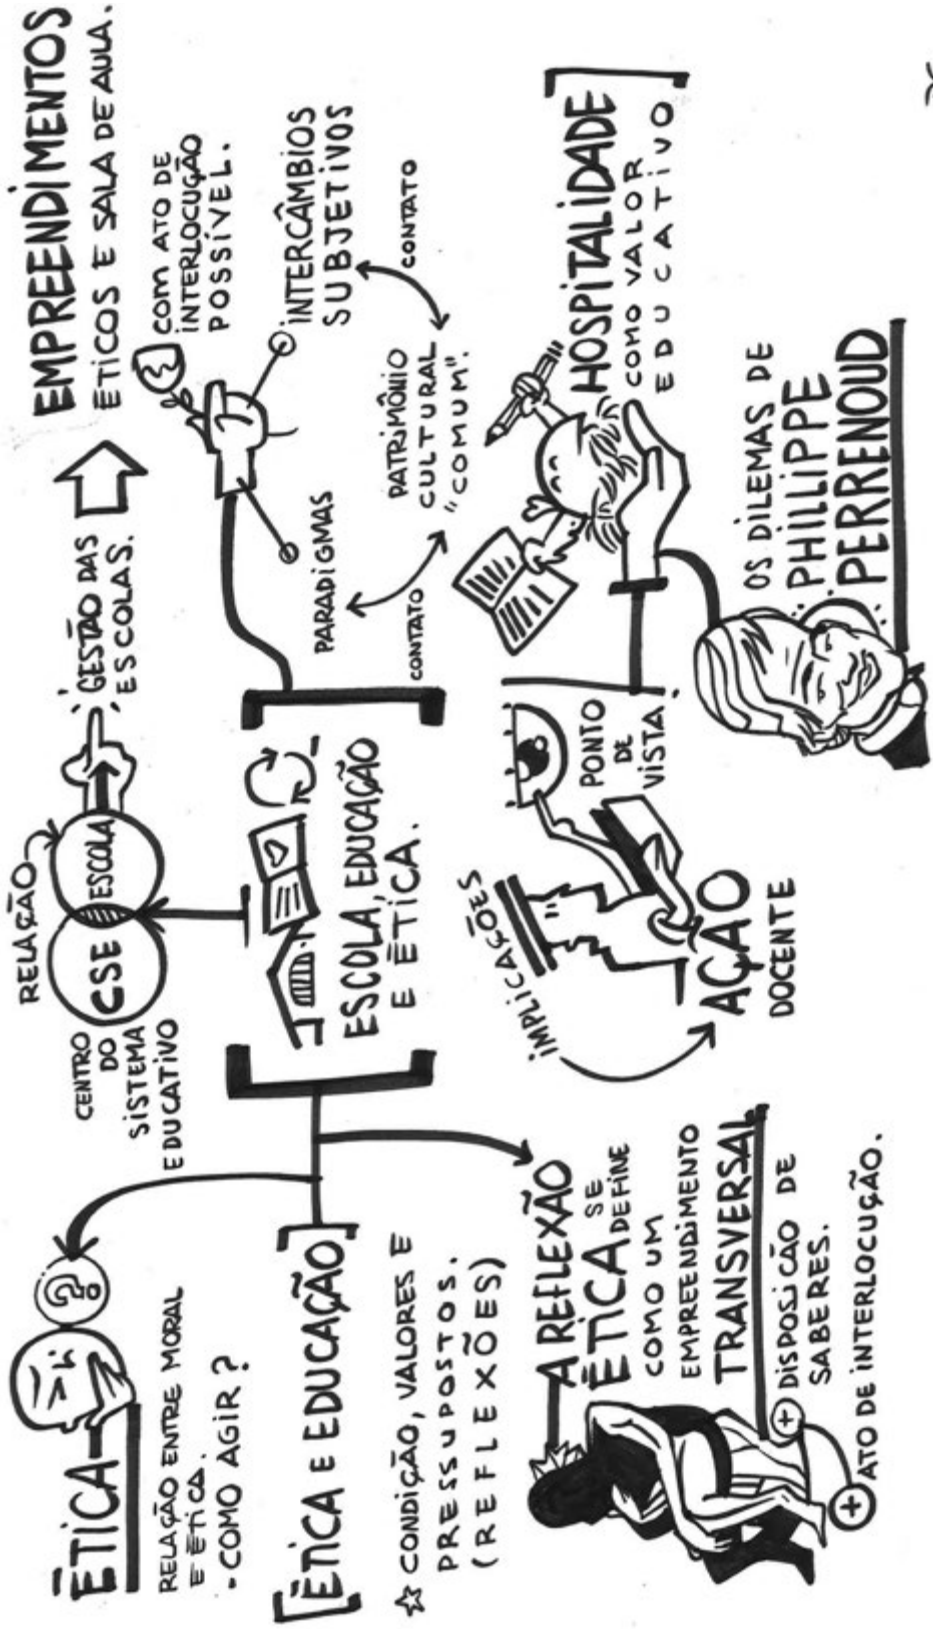 ÉTICA
RELAÇÃO ENTRE MORAL
E ÉTICA.
- COMO AGIR?
?
[ÉTICA E EDUCAÇÃO]
☆ CONDIÇÃO, VALORES E
PRESSUPOSTOS.
(REFLEXÕES)
A REFLEXÃO
ÉTICA SE
DEFINE
COMO UM
EMPREENDIMENTO
TRANSVERSAL
+ DISPOSIÇÃO DE
SABERES.
+ ATO DE INTERLOCUÇÃO.
RELAÇÃO
CENTRO
DO
SISTEMA
EDUCATIVO
CSE
ESCOLA
GESTÃO DAS
ESCOLAS.
EMPREENDIMENTOS
ÉTICOS E SALA DE AULA.
ESCOLA, EDUCAÇÃO
E ÉTICA.
COM ATO DE
INTERLOCUÇÃO
POSSÍVEL.
INTERCÂMBIOS
SUBJETIVOS
PARADIGMAS
CONTATO
PATRIMÔNIO
CULTURAL
"COMUM".
CONTATO
IMPLICAÇÕES
AÇÃO
DOCENTE
PONTO
DE
VISTA
[HOSPITALIDADE]
COMO VALOR
EDUCATIVO
OS DILEMAS DE
PHILLIPPE
PERRENOUD